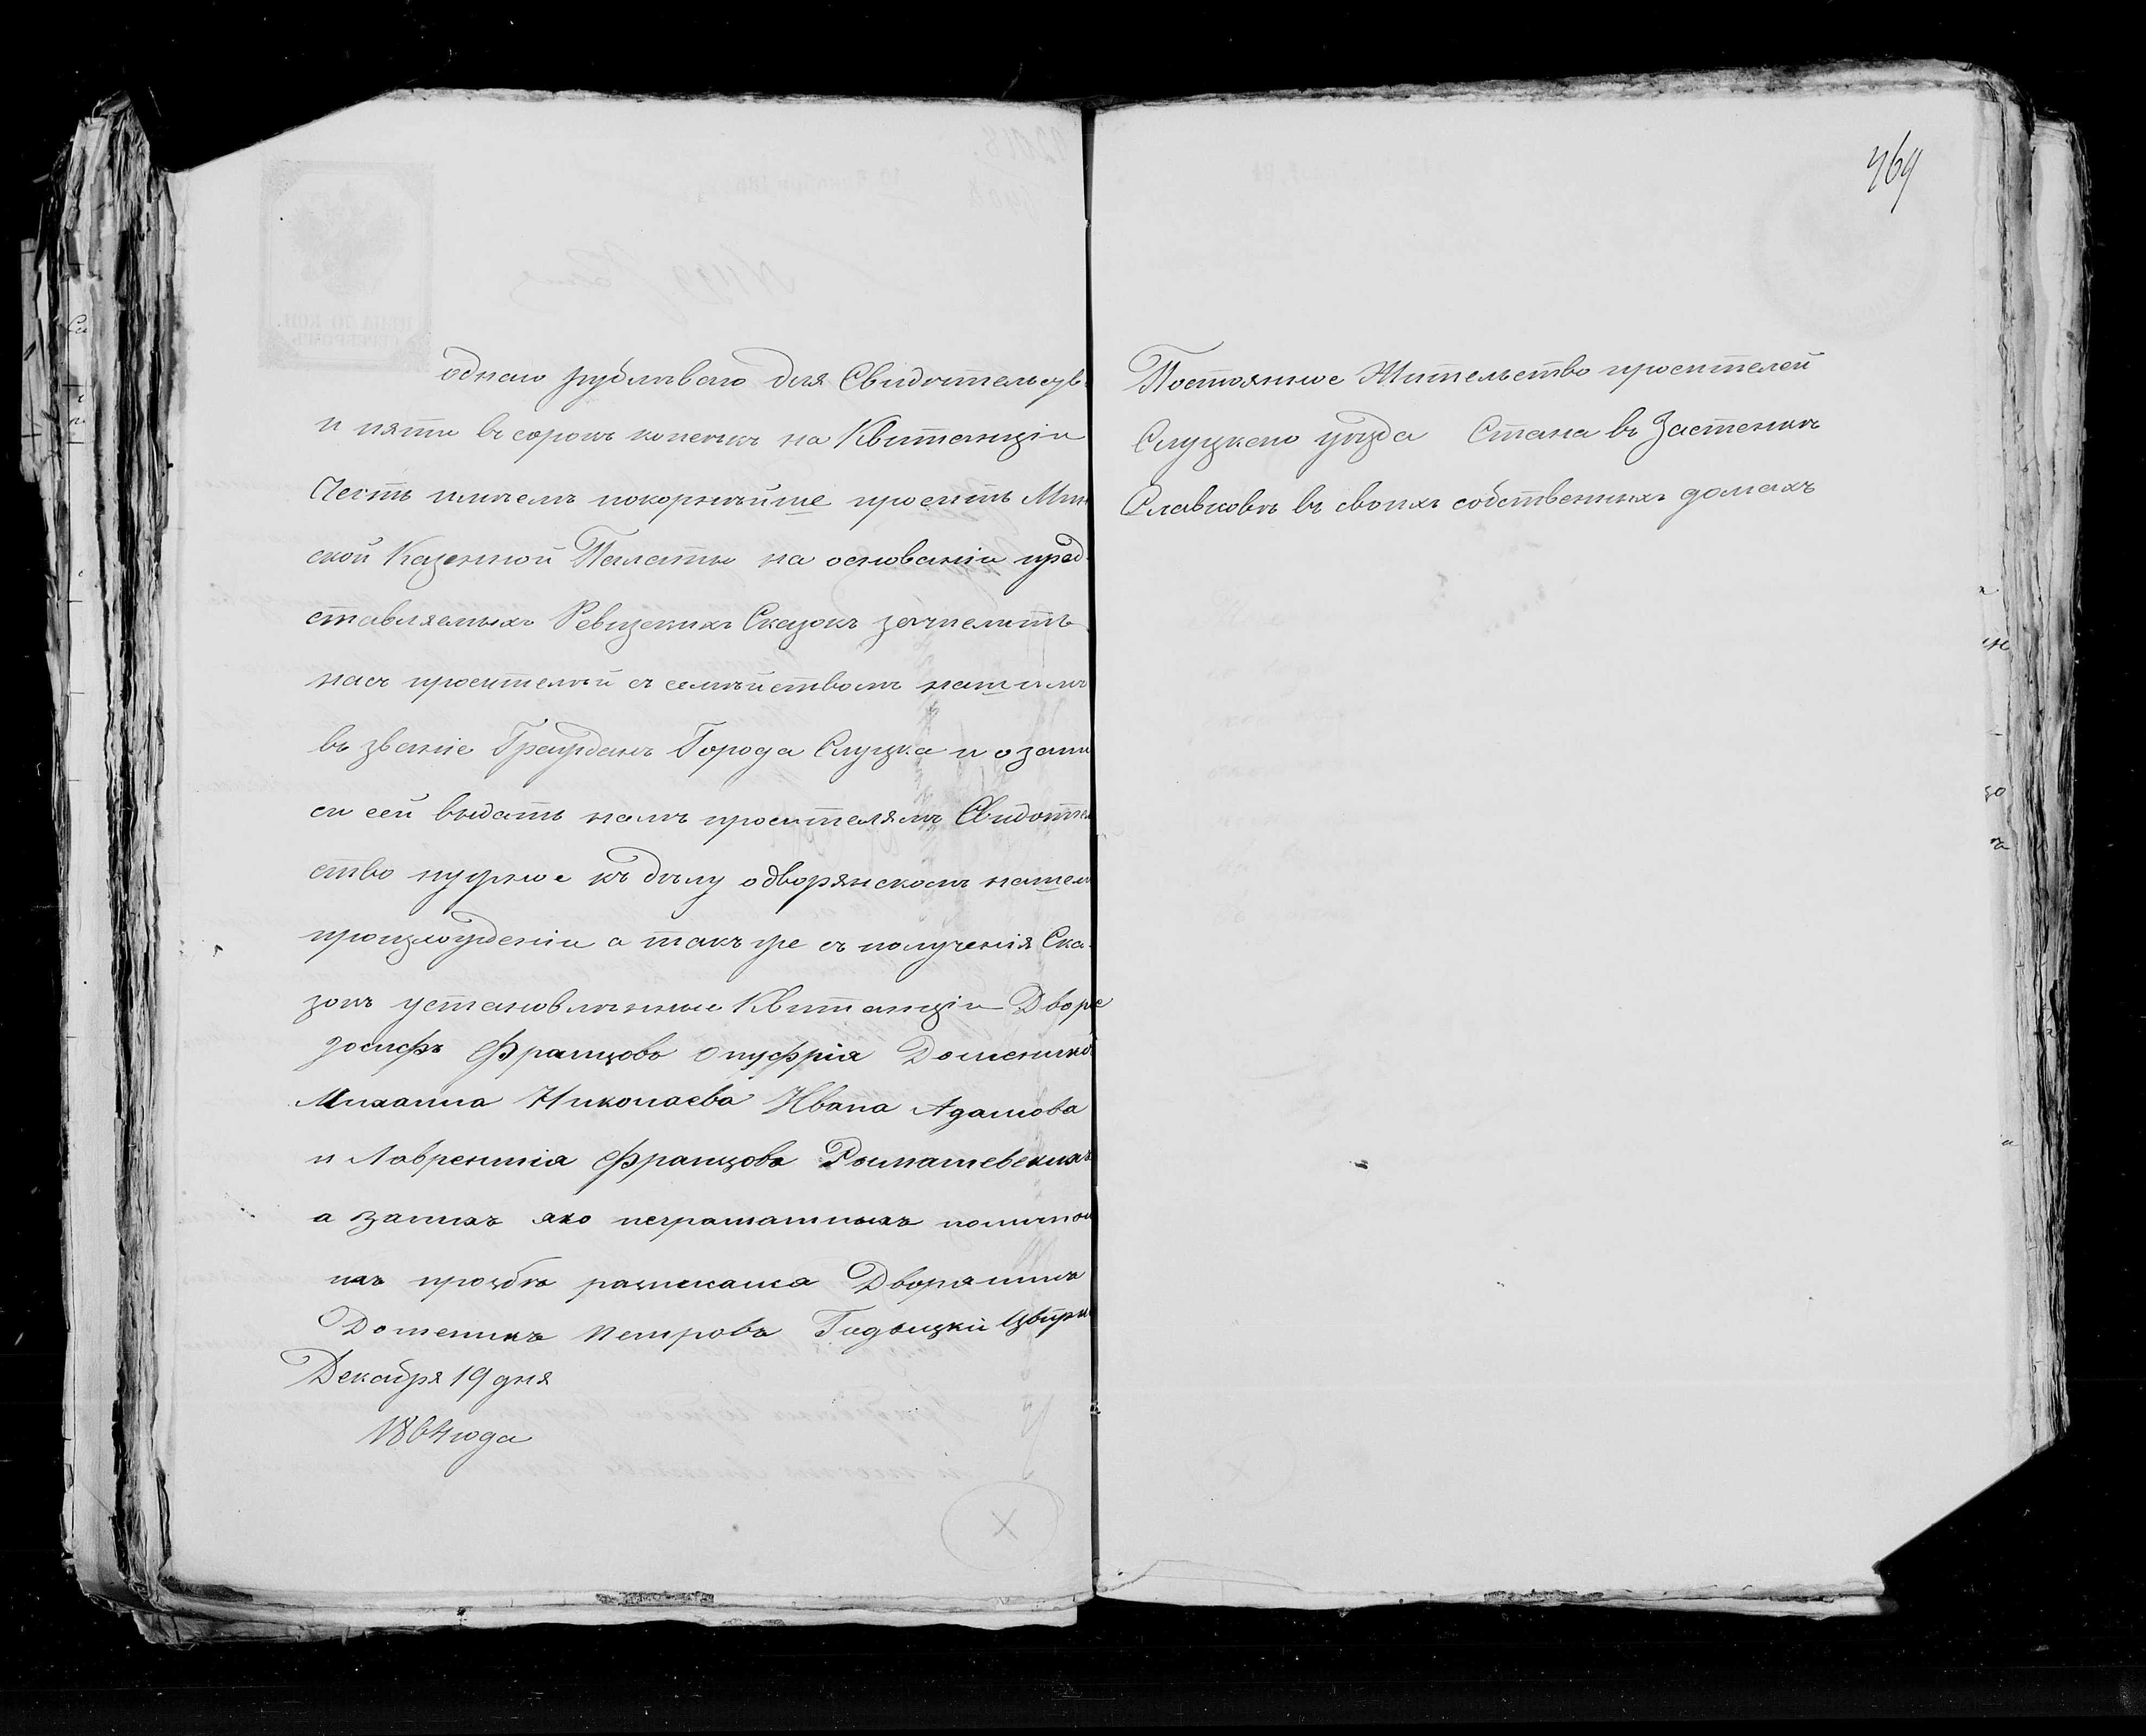 однаго рублеваго для Свидѣтельсув
и пяти въ сорокъ копеекъ на Квитанціи
Честь имѣемъ покорнѣйше просить Мин
ской Казенной Палаты на основаніи пред-
ставляемыхъ Ревизскихъ Сказокъ зачислить
насъ просителѣй съ семѣйствомъ нашимъ
въ званіе Граждан Города Слуцка и о запи
си сей выдать намъ просителямъ Свидѣтел
ство нужное къ дѣлу о дворянскомъ нашем
произхожденіи а такъ же съ полученія Ска-
зокъ установлѣнные Квитанціи Дворе
Іосифъ Францовъ Онуфрія Доменико
Михаила Николаева Ивана Адамова
и Лаврентія Францова Рымашевскихъ
а занихъ яко неграматныхъ поличной
ихъ прозбѣ расписался Дворянинъ
Доменикъ Петровъ Гидзицкій Цвирк
Декабря 19 дня
1864 года
469
Постоянное Жительство просителей
Слуцкаго уѣзда Стана въ Застенкѣ
Славковѣ въ своихъ собственныхъ домахъ
ЦѢНА 70 КОП.
СЕРЕБРОМЪ